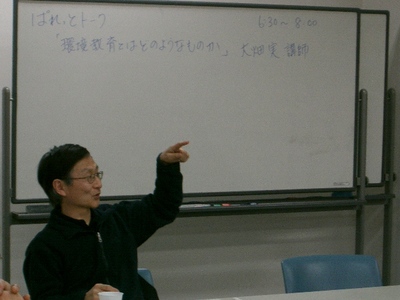 ぱれっとトーク 6:30〜8:00
「環境教育とはどのようなものか」 大畑 実 講師